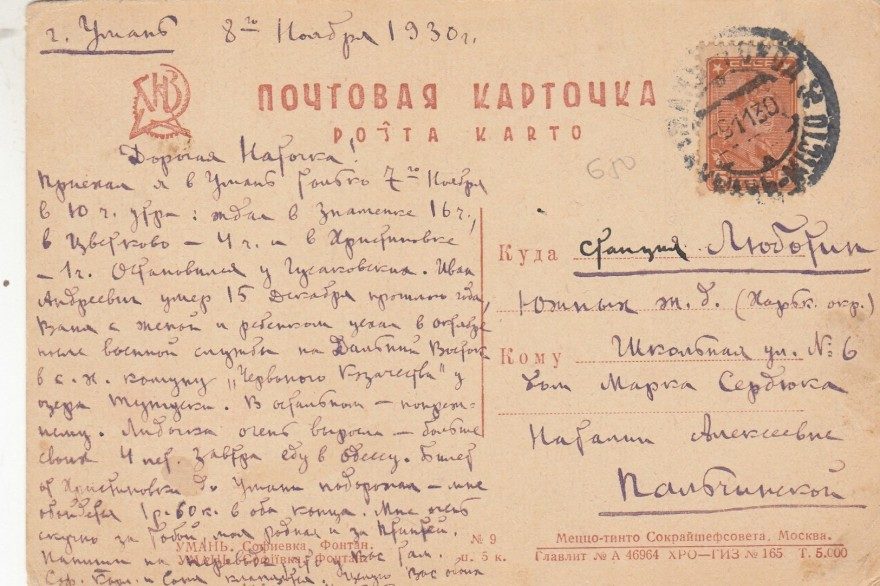 г. Умань 8го Ноября 1930 г.
ПОЧТОВАЯ КАРТОЧКА
POŜTA KARTO
Дорогая Наточка!
Приехал я в Умань только 7го Ноября
в 10 ч. утра: ждал в Знаменке 16 ч.,
в Цветково – 4 ч. и в Христиновке
– 1 ч. Остановился у Гусаковских. Иван
Андреевич умер 15 Декабря прошлого года,
Ваня с женой и ребенком уехал в октябре
после военной службы на Дальний Восток
в с. х. комуну „Червоного Козачества" у
озера. В остальном – по прежнему.
Лидочка очень выросла – больше
своих 4 лет. Завтра еду в Одессу. Билет
от Христиновки до Умани подорожал – мне
обойдется 1 р. 60 к. в оба конца. Мне очень
скучно за Тобой, моя родная и за
Напиши на Вас
Соф. Вас очень
Куда станция Люботин
Южных ж. д. (Харьк. окр.)
Кому Школьная ул. № 6
дом Марка Сердюка
Наталии Алексеевне
Пальчинской
650
-6.11.30
УМАНЬ. Софиевка. Фонтан.
УМАНЬ. Софіївка. Фонтан.
№ 9
ц. 5 к.
Меццо-тинто Сокрайшефсовета, Москва.
Главлит № А 46964 ХРО–ГИЗ № 165 Т. 5.000